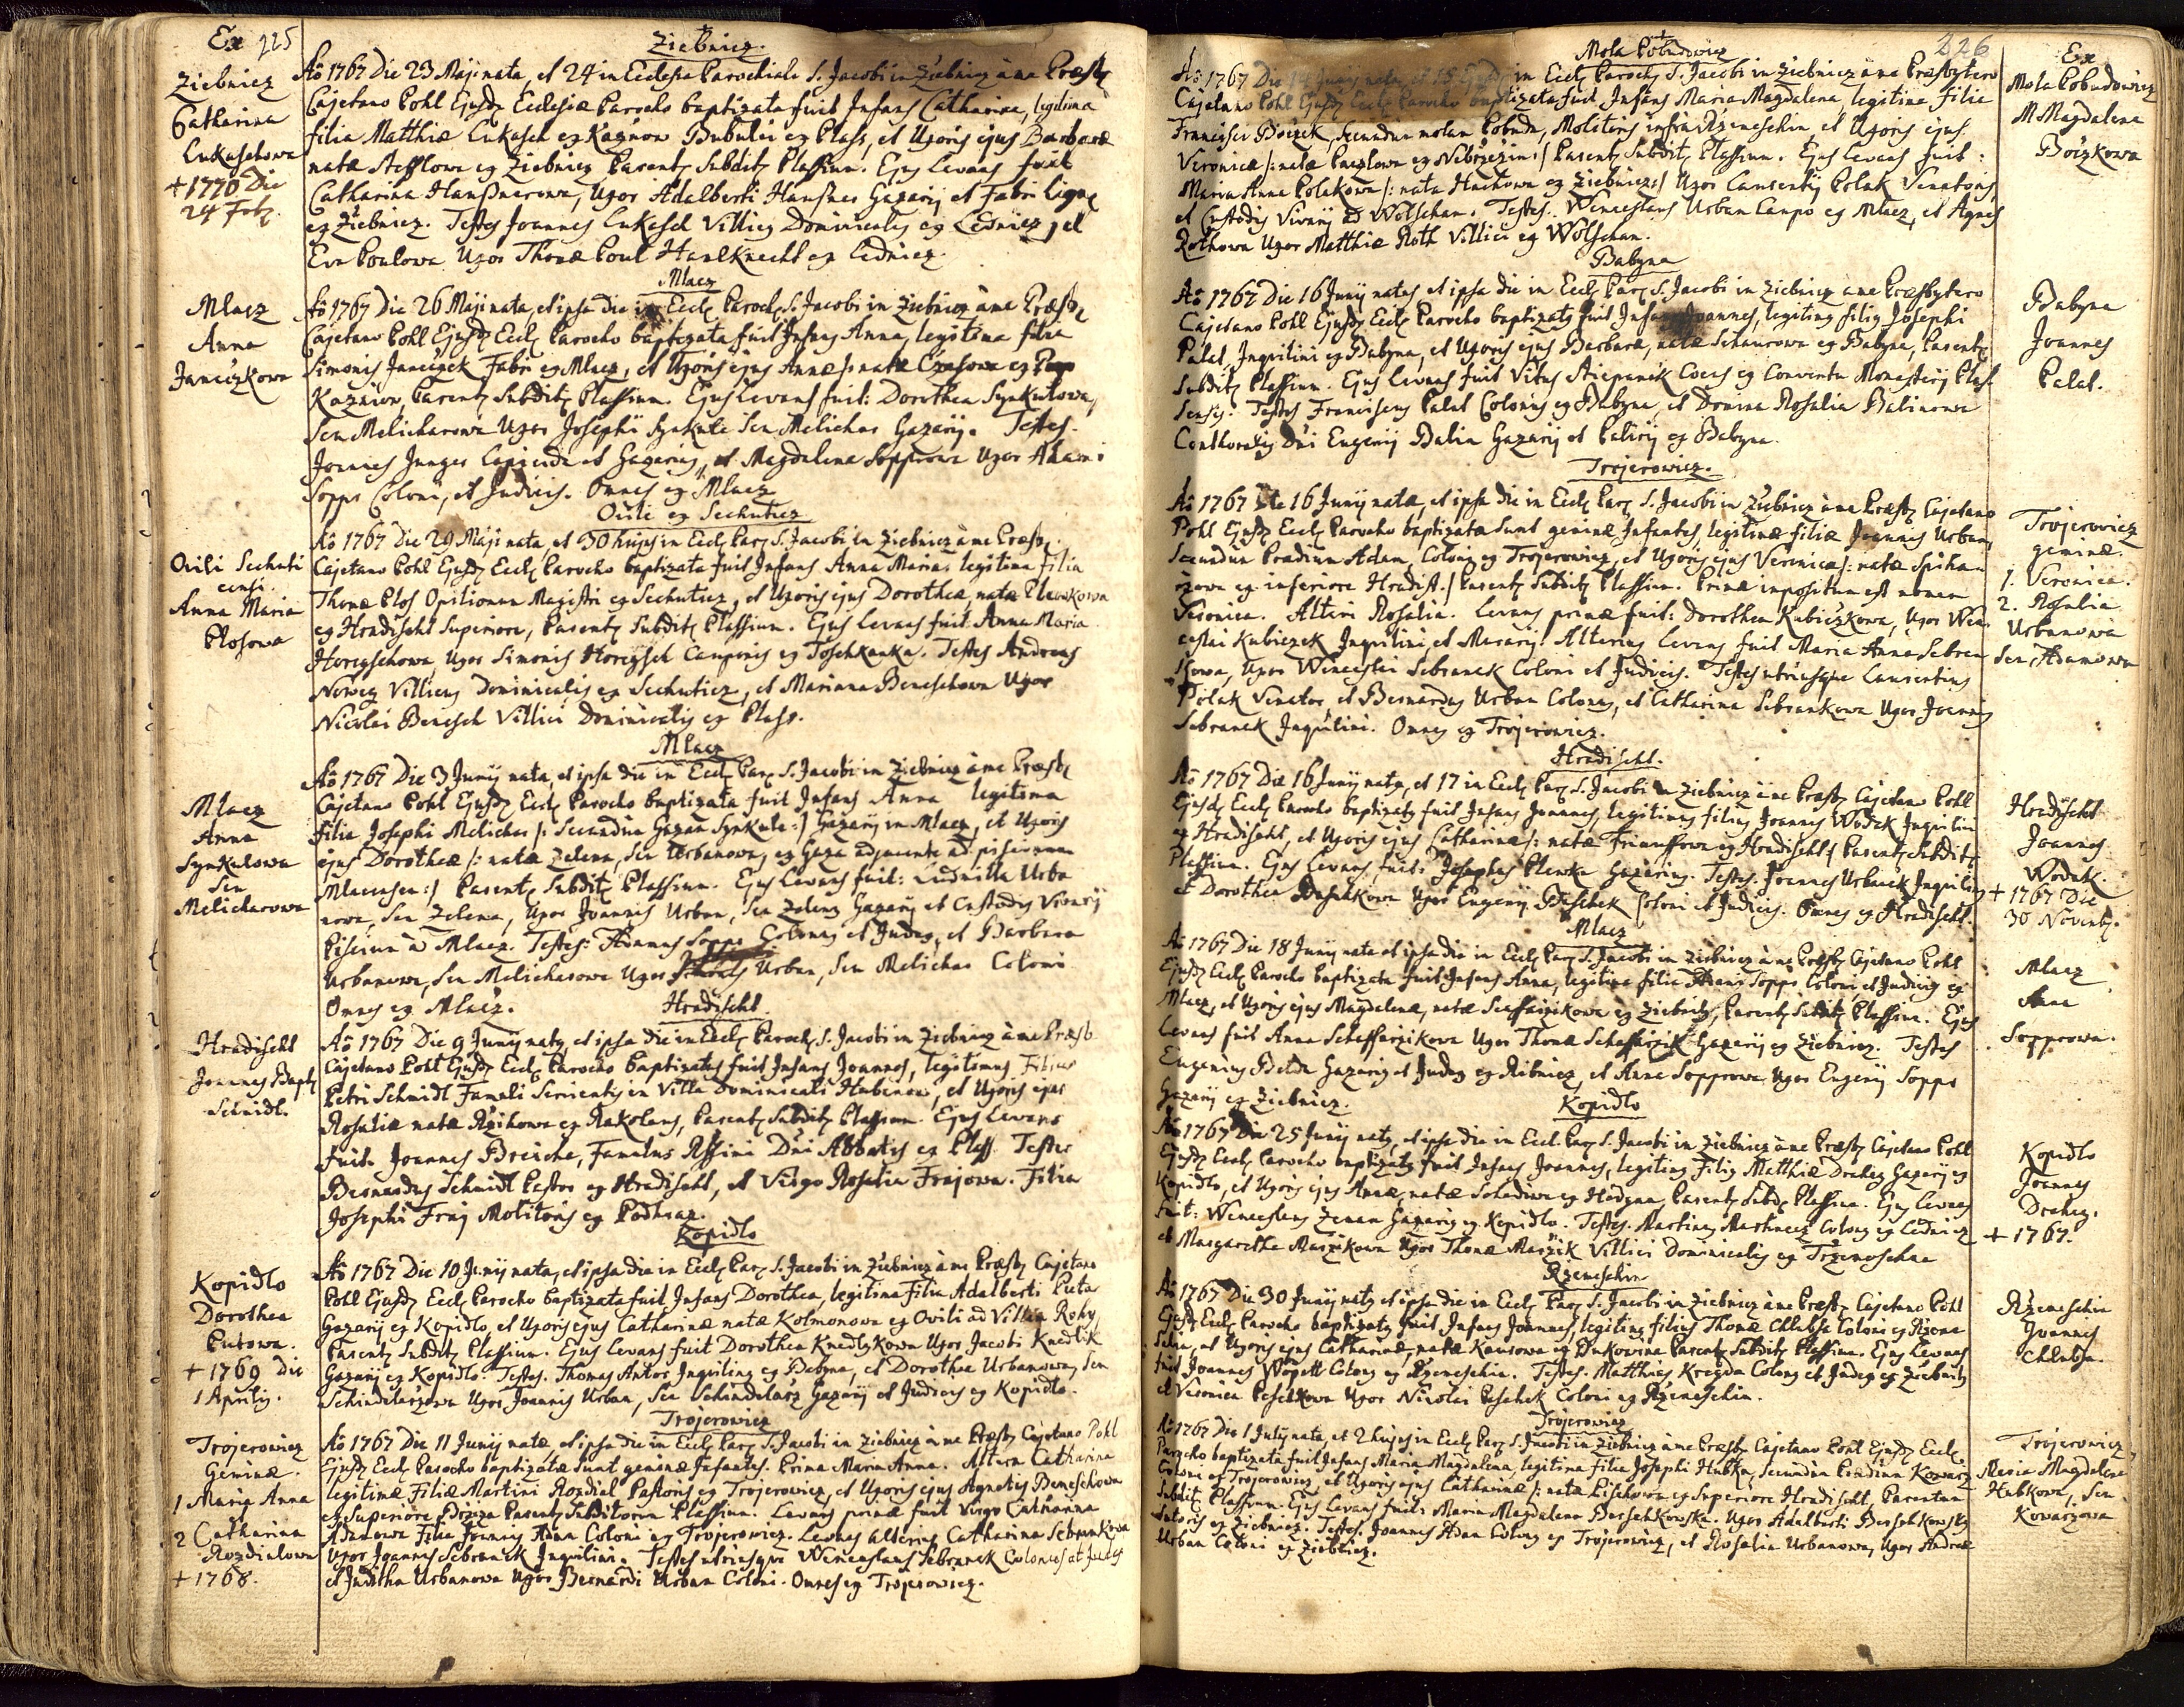 Ex 225
Ziebnicz.
Ziebnicz
Catharina
Lukaschowa
+ 1770 Die
24 Feb.
Ao 1767 Die 23 Maji nata, et 24 in Ecclesia Parochiali S. Jacobi in Ziebnicz à me Præsb
Cajetano Pohl Ejusd Ecclesiæ Parocho baptizata fuit Infans Catharina, legitima
filia Matthiæ Lukasch ex Kaznow Bubulci ex Plass, et Uxoris ejus Barbaræ
natæ Stefflowa ex Ziebnicz Parent Subdit Plassium. Ejus Levans fuit
Catharina Hanssnerowa, Uxor Adalberti Hanssner Gazarij et Fabri Lign
ex Ziebnicz. Testes Joannes Lukesch Villicus Dominicalis ex Lednicz, et
Eva Poulowa Uxor Thomæ Poul Hausknecht ex Lednicz.
Mlacz
Mlacz
Anna
Janeczkowa
Ao 1767 Die 26 Maji nata, et ipsa die in Eccl Paroch S. Jacobi in Ziebnicz à me Præsb
Cajetano Pohl Ejusd Eccl Parocho baptizata fuit Infans Anna, legitima filia
Simonis Janeczek Fabri ex Mlacz, et Uxoris ejus Annæ /: natæ Czasowa ex
Kaznion, Parent Subdit Plassium. Ejus Levans fuit: Dorothea Synkulowa,
Seu Melicharowa Uxor Josephi Synkule Seu Melichar Gazarij. Testes.
Joannes Junger Lapicida et Gazarius, et Magdalena Sopprowa Uxor Adami
Sopps Coloni, et Judicis. Omnes ex Mlacz
Ovili ex Sechuticz
Ovili Sechuti
censi.
Anna Maria
Plosowa
Ao 1767 Die 29 Maji nata, et 30 hujus in Eccl Par S. Jacobi in Ziebnicz à me Præsb.
Cajetano Pohl Ejusd Eccl Parocho baptizata fuit Infans Anna Maria, legitima filia
Thomæ Plos Opilionum Magistri ex Sechuticz, et Uxoris ejus Dorotheæ, natæ Plewkowa
ex Hradischt Superiore, Parent Subdit Plassium. Ejus Levans fuit: Anna Maria
Horeyschowa, Uxor Simonis Horeysch Cauponis ex Toschkanka. Testes Andreas
Norweg Villicus Dominicalis ex Sechuticz, et Marianna Beneschowa Uxor
Nicolai Benesch Villici Dominicalis ex Plass.
Mlacz
Mlacz
Anna
Synkulowa
Seu
Melicharowa
Ao 1767 Die 3 Junij nata, et ipsa die in Eccl Par S. Jacobi in Ziebnicz à me Præsb
Cajetano Pohl Ejusd Eccl Parocho baptizata fuit Infans Anna legitima
filia Josephi Melichar /: Secundum Gazam Synkule :/ Gazarij in Mlacz, et Uxoris
ejus Dorotheæ /: natæ Zelena, Seu Urbanowa, ex Gaza adjacente ad piscinam
Mlacensem :/ Parent Subdit Plassium. Ejus Levans fuit: Ludmilla Urba
nowa, Seu Zelena, Uxor Joannis Urban, Seu Zeleny Gazarij et Custodis Vivarij
Piscium à Mlacz. Testes: Adamus Sopps Colonus et Judex, et Barbara
Urbanowa, Seu Melicharowa Uxor Urban, Seu Melichar Coloni
Omnes ex Mlacz.
Hradischt.
Hradischt
Joannes Bapt
Schmidt.
Ao 1767 Die 9 Junij natus, et ipsa die in Eccl Paroch S. Jacobi in Ziebnicz à me Præsb
Cajetano Pohl Ejusd Eccl Parocho baptizatus fuit Infans Joannes, legitimus Filius
Petri Schmidt Famuli Servientis in Villa Dominicali Hubenow, et Uxoris ejus
Rosaliæ natæ Rzihowa ex Rakolaus, Parent Subdit Plassium. Ejus Levans
fuit. Joannes Breicha, Famulus Rssimi Dni Abbatis ex Plass. Testes
Bernardus Schmidt Pastor ex Hradischt, et Virgo Rosalia Frajowa. Filia
Josephi Fraj Molitoris ex Podhraz.
Kopidlo
Kopidlo
Dorothea
Putowa.
+ 1769 die
1 Aprilis.
Ao 1767 Die 10 Junij nata, et ipsa die in Eccl Par S. Jacobi in Ziebnicz à me Præsb Cajetano
Pohl Ejusd Eccl Parocho baptizata fuit Infans Dorothea, legitima Filia Adalberti Puta
Gazarij ex Kopidlo, et Uxoris ejus Catharinæ natæ Kolmonowa ex Ovili ad Villam Rohy,
Parent Subdit Plassium. Ejus Levans fuit Dorothea Knedlykowa Uxor Jacobi Knedlik
Gazarij ex Kopidlo. Testes. Thomas Antos Inquilinus ex Babyna, et Dorothea Urbanowa, Seu
Schindelarzowa Uxor Joannis Urban, Seu Schindelarz Gazarij et Judicis ex Kopidlo.
Trojerowicz
Trojerowicz
Geminæ.
1 Maria Anna
2 Catharina
Rozdialowa
+ 1768.
Ao 1767 Die 11 Junij natæ, et ipsa die in Eccl Par S. Jacobi in Ziebnicz à me Præsb Cajetano Pohl
Ejusd Eccl Parocho baptizatæ sunt geminæ Infantes. Prima Maria Anna. Altera Catharina
legitimæ Filiæ Martini Rozdial Pastoris ex Trojerowicz, et Uxoris ejus Agnetis Beneschowa
ex Superiore Brziza Parent Subditorum Plassium. Levans primæ fuit Virgo Catharina
Adamowa Filia Joannis Adam Coloni ex Trojerowicz. Levans alterius Catharina Sebrankowa
Uxor Joannis Sebranek Inquilini. Testes utriusque Wenceslaus Sebranek Colonus et Judex
et Juditha Urbanowa Uxor Bernardi Urban Coloni. Omnes ex Trojerowicz.
226
Mola Pobudowicz
Ex
Mola Pobudowicz
M Magdalena
Boczkowa
Ao 1767 Die 14 Junij nata, et 15 Ejusd in Eccl Paroch S. Jacobi in Ziebnicz à me Præsbytero
Cajetano Pohl Ejusd Eccl Parocho baptizata fuit Infans Maria Magdalena, legitima filia
Francisci Boczek, Secundum molam Pobuda, Molitoris infra Rzemeschin, et Uxoris ejus
Veronicæ /: natæ Paczlowa ex Nebrzezin :/ Parent Subdit Plassium. Ejus Levans fuit:
Maria Anna Polakowa /: nata Huchowa ex Ziebnicz :/ Uxor Laurentij Polak Venatoris,
et Custodis Vivarij à Wolschan. Testes. Wenceslaus Urban Caupo ex Mlacz, et Agnes
Rothowa Uxor Matthiæ Roth Villici ex Wolschan.
Babyna
Babyna
Joannes
Palat.
Ao 1767 Die 16 Junij natus et ipsa die in Eccl Par S. Jacobi in Ziebnicz à me Præsbytero
Cajetano Pohl Ejusd Eccl Parocho baptizatus fuit Infans Joannes, legitimus filius Josephi
Palat, Inquilini ex Babyna, et Uxoris ejus Barbaræ, natæ Schaurowa ex Babyna, Parent
Subdit Plassium. Ejus Levans fuit Vitus Stiepanek Cocus ex Conventu Monasterij Plas
sensis. Testes Franciscus Palat Colonus ex Babyna, et Domina Rosalia Balinowa
Conthoralis Dni Eugenij Balin Gazarij et Patirij ex Babyna.
Trojerowicz.
Trojerowicz
geminæ.
1. Veronica.
2. Rosalia
Urbanowa
Seu, Adamowa
Ao 1767 Die 16 Junij natæ, et ipsa die in Eccl Par S. Jacobi in Ziebnicz à me Præsb Cajetano
Pohl Ejusd Eccl Parocho baptizatæ sunt geminæ Infantes, legitimæ filiæ Joannis Urban,
Secundum Prædium Adam, Coloni ex Trojerowicz, et Uxoris ejus Veronicæ /: natæ Spihau
rzowa ex inferiore Hradist :/ Parent Subdit Plassium. Primæ impositum est nomen
Veronica. Alteri Rosalia. Levans primæ fuit: Dorothea Kubiczkowa, Uxor Wen
ceslai Kubiczek Inquilini, et Murarij. Alterius Levans fuit Maria Anna Sebran
kowa, Uxor Winceslai Sebranek Coloni et Judicis. Testes utriusque Laurentius
Polak Venator, et Bernardus Urban Colonus, et Catharina Sebrankowa Uxor Joannis
Sebranek Inquilini. Omnes ex Trojerowicz.
Hradischt.
Hradischt
Joannes
Wodak.
+ 1767 Die
30 Novemb.
Ao 1767 Die 16 Junij natus, et 17 in Eccl Par S. Jacobi in Ziebnicz à me Præsb Cajetano Pohl
Ejusd Eccl Parocho baptizatus fuit Infans Joannes, legitimus filius Joannis Wodak Inquilini
ex Hradischt, et Uxoris ejus Catharinæ /: natæ Triumffowa ex Hradischt :/ Parent Subdit
Plassium. Ejus Levans fuit: Josephus Plewka Gazarius. Testes. Joannes Urbanek Inquilinus
et Dorothea Beschkowa Uxor Eugenij Beschek Coloni et Judicis. Omnes ex Hradischt.
Mlacz
Mlacz
Anna
Sopprowa.
Ao 1767 Die 18 Junij nata et ipsa die in Eccl Par S. Jacobi in Ziebnicz à me Præsb Cajetano Pohl
Ejusd Eccl Parocho baptizata fuit Infans Anna, legitima filia Adami Sopps Coloni, et Judicis ex
Mlacz, et Uxoris ejus Magdalenæ, natæ Scheffarzikowa ex Ziebnicz, Parent Subdit Plassium. Ejus
Levans fuit Anna Scheffarzikowa Uxor Thomæ Scheffarzik Gazarij ex Ziebnicz. Testes
Eugenius Belda Gazarius et Judex ex Ribnicz, et Anna Sopprowa Uxor Eugenij Sopps
Gazarij ex Ziebnicz.
Kopidlo
Kopidlo
Joannes
Drahey.
+ 1767.
Ao 1767 Die 25 Junij natus, et ipsa die in Eccl Par S. Jacobi in Ziebnicz à me Præsb Cajetano Pohl
Ejusd Eccl Parocho baptizatus fuit Infans Joannes, legitimus Filius Matthiæ Drahey Gazarij ex
Kopidlo, et Uxoris ejus Annæ, natæ Sohadowa ex Hodyna Parent Subd Plassium. Ejus Levans
fuit: Wenceslaus Zeman Gazarius ex Kopidlo. Testes. Martinus Martinecz Colonus ex Lednicz
et Margaretha Maszikowa Uxor Thomæ Maszik Villici Dominicalis ex Trzemoschna
Rzemeschin
Rzemeschin
Joannes
Chlubsa.
Ao 1767 Die 30 Junij natus et ipsa die in Eccl Par S. Jacobi in Ziebnicz à me Præsb Cajetano Pohl
Ejusd Eccl Parocho baptizatus fuit Infans Joannes, legitimus filius Thomæ Chlubsa Coloni ex Rzeme
schin, et Uxoris ejus Catharinæ, natæ Kausowa ex Bukowina Parent Subdit Plassium. Ejus Levans
fuit Joannes Wopett Colonus ex Rzemeschin. Testes. Matthias Kregda Colonus et Judex ex Ziebnicz
et Veronica Peschkowa Uxor Nicolai Peschek Coloni ex Rzemeschin.
Trojerowicz
Trojerowicz
Maria Magdalena
Hubkowa, Seu
Kowarzowa
Ao 1767 Die 1 Julij nata, et 2 hujus in Eccl Par S. Jacobi in Ziebnicz à me Præsb Cajetano Pohl Ejusd Eccl
Parocho baptizata fuit Infans Maria Magdalena, legitima filia Josephi Hubka, Secundum Prædium Kowarz
Coloni ex Trojerowicz, et Uxoris ejus Catharinæ /: natæ Lischowa ex Superiore Hradischt, Parentum
Subdit Plassium. Ejus Levans fuit: Maria Magdalena Berschkowska. Uxor Adalberti Berschkowsky
Sutoris ex Ziebnicz. Testes. Joannes Adam Colonus ex Trojerowicz, et Rosalia Urbanowa, Uxor Andreæ
Urban Coloni ex Ziebnicz.